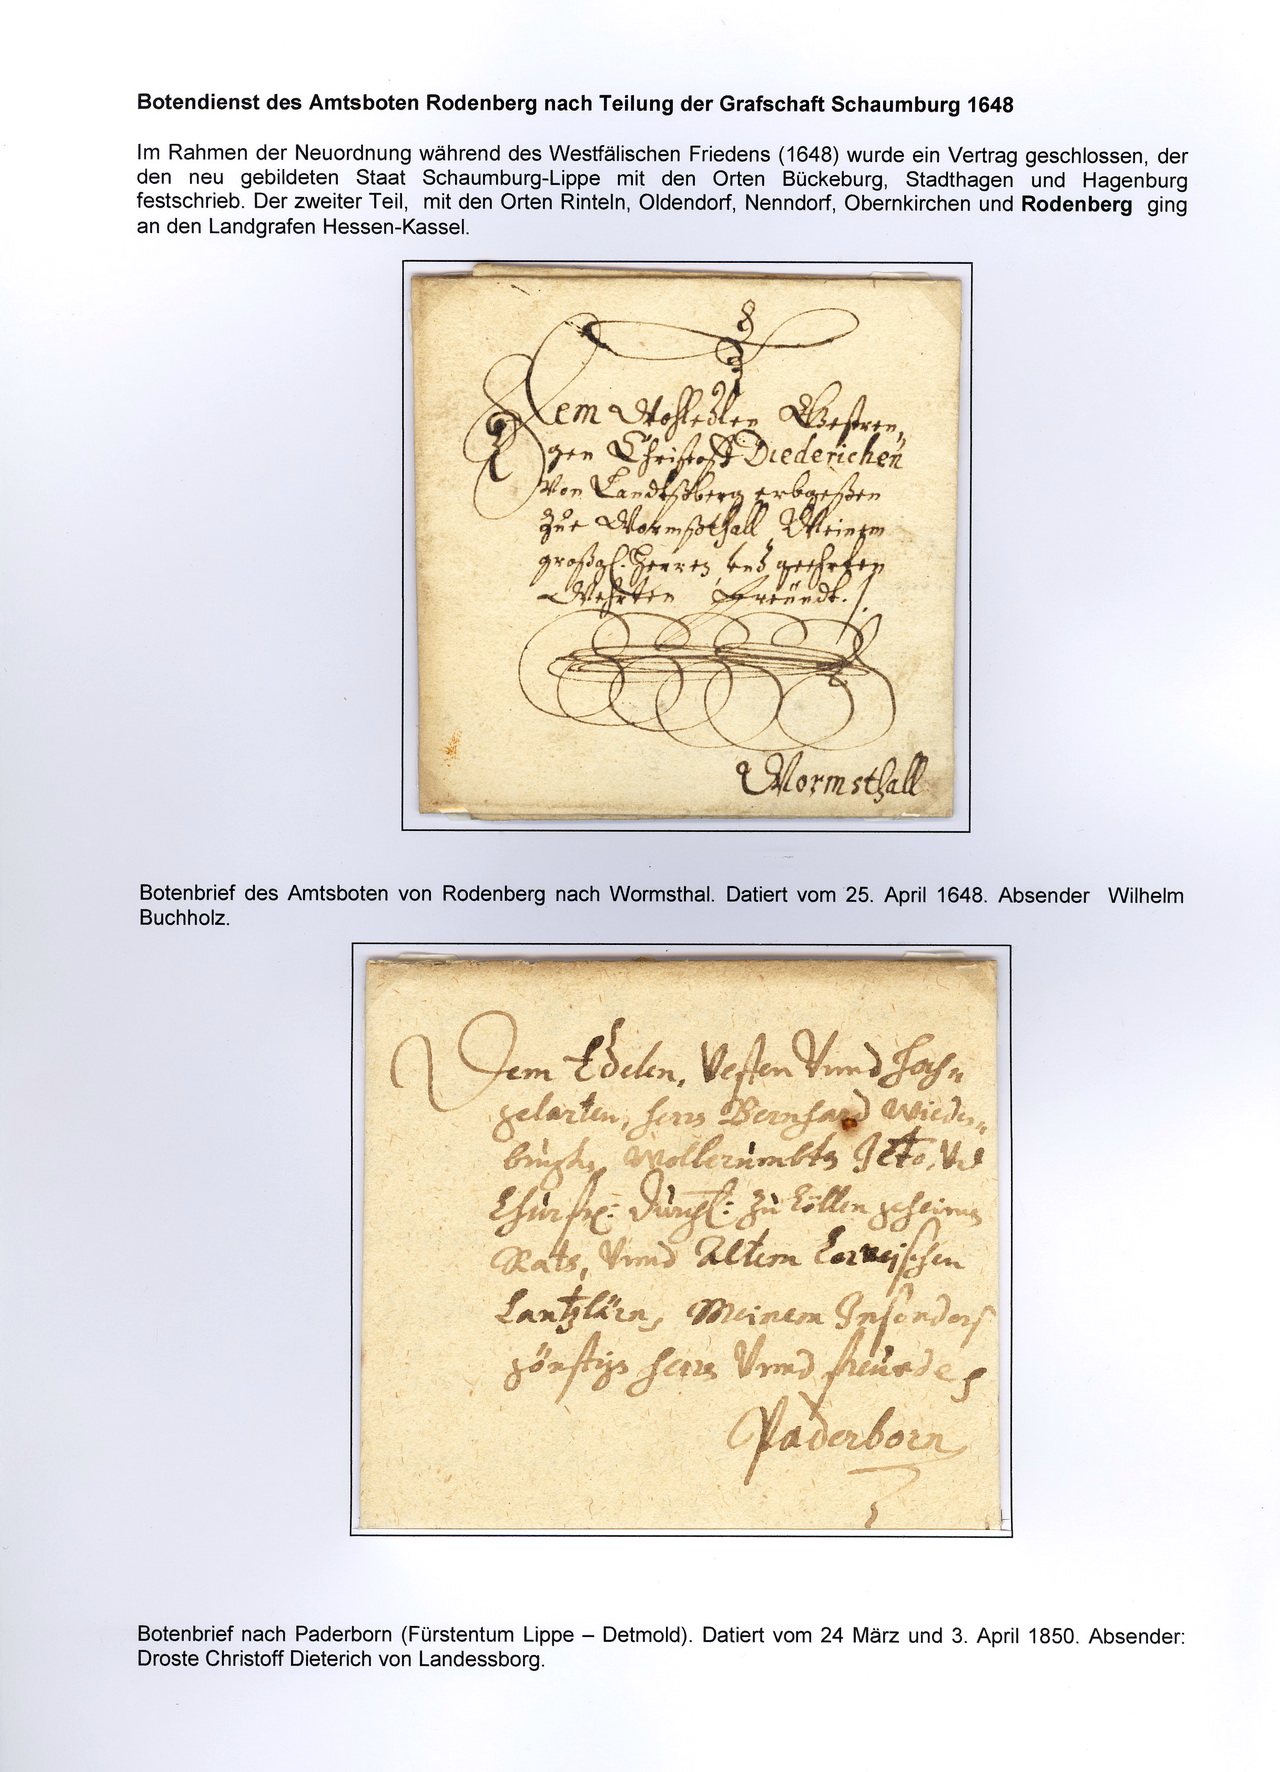 Botendienst des Amtsboten Rodenberg nach Teilung der Grafschaft Schaumburg 1648
Im Rahmen der Neuordnung während des Westfälischen Friedens (1648) wurde ein Vertrag geschlossen, der
den neu gebildeten Staat Schaumburg-Lippe mit den Orten Bückeburg, Stadthagen und Hagenburg
festschrieb. Der zweiter Teil, mit den Orten Rinteln, Oldendorf, Nenndorf, Obernkirchen und Rodenberg ging
an den Landgrafen Hessen-Kassel.
Dem Wohledlen Gestren„
gen Christoff Diederichen
von Landtßberg erbgeßen
zue Wormßthall Meinem
großgl. Herren undt geehrten
Wehrten Freündt.
Wormsthall
Botenbrief des Amtsboten von Rodenberg nach Wormsthal. Datiert vom 25. April 1648. Absender Wilhelm
Buchholz.
Dem Edelen, Vesten Vnnd Hoch„
gelarten, Herrn Bernhard Wieden„
brügk, Wollerümbten
Churfr: Dürchl: zu Cöllen geheimen
Rats, Vnnd Altem Corveischen
Cantzlärn, Meinem Insonders
gönstign Herrn Vnnd freunde
Paderborn
Botenbrief nach Paderborn (Fürstentum Lippe – Detmold). Datiert vom 24 März und 3. April 1850. Absender:
Droste Christoff Dieterich von Landessborg.